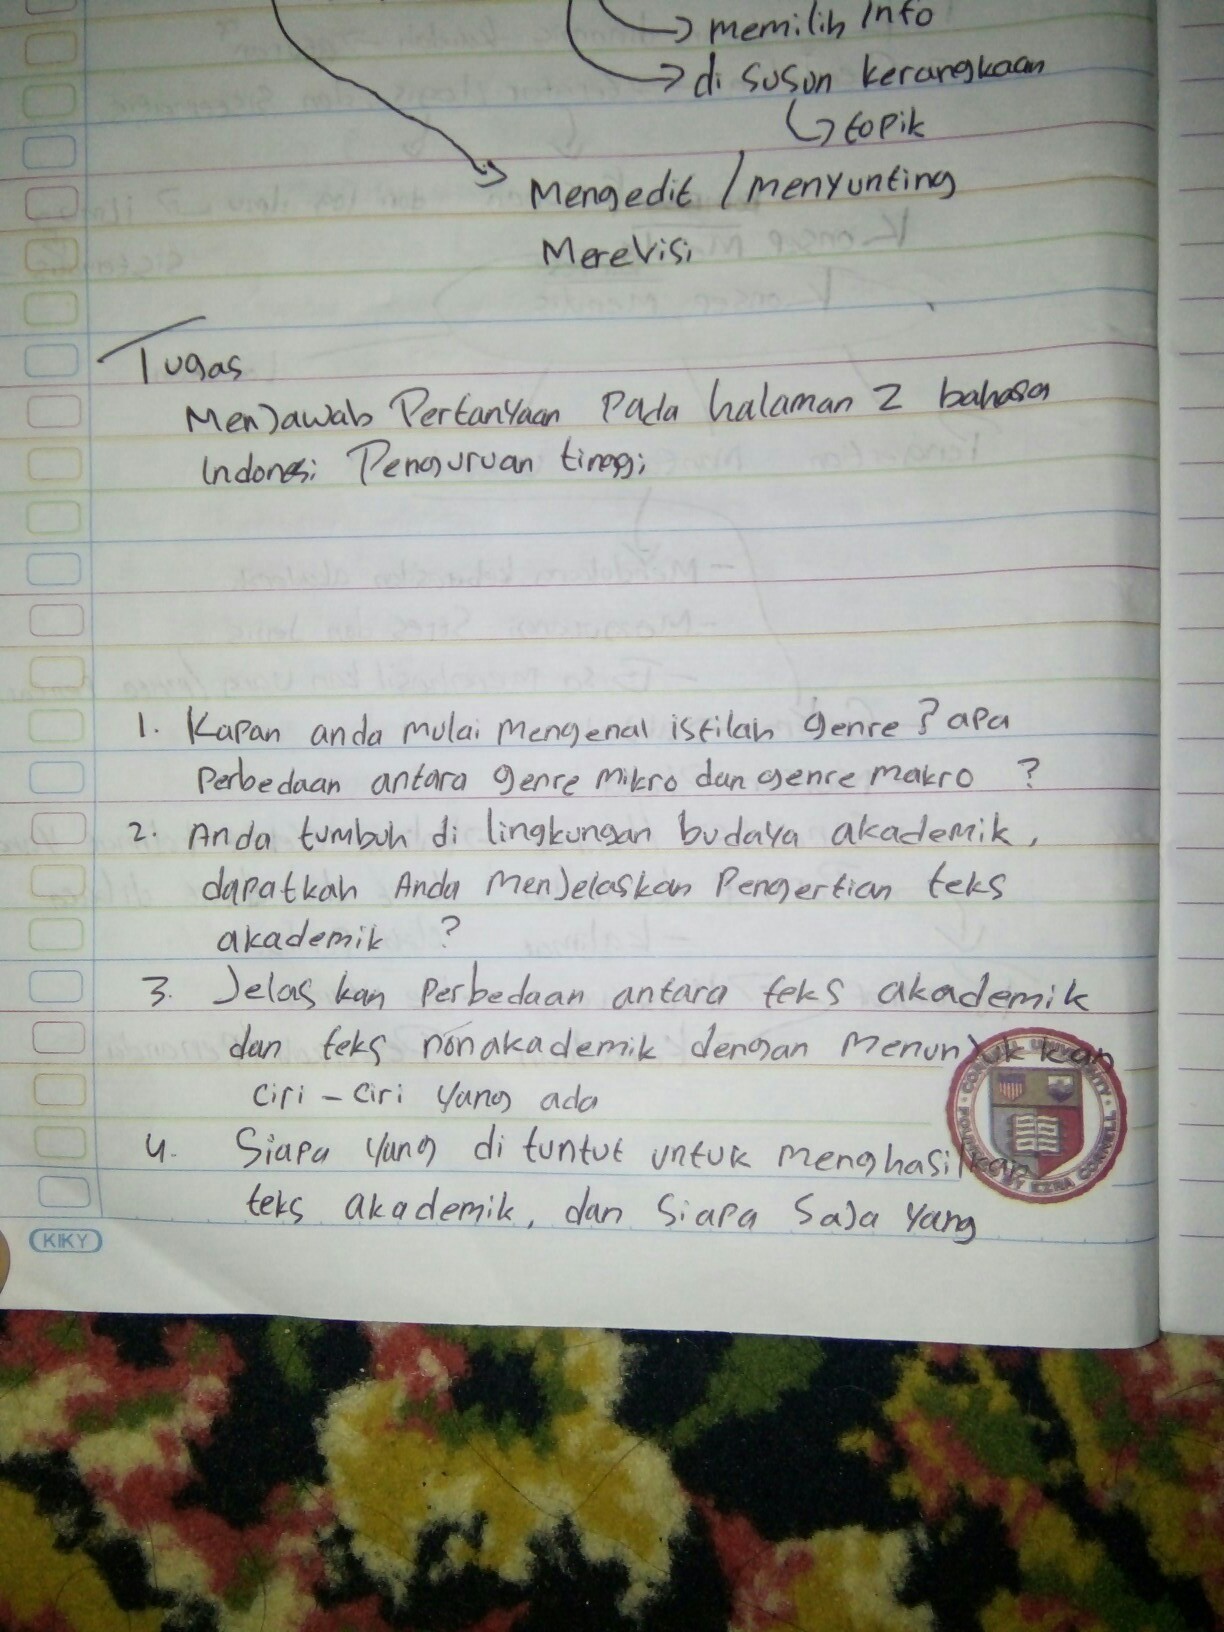 memilih Info
di susun kerangkaan
topik
Mengedit / menyunting
Merevisi
Tugas
Menjawab Pertanyaan Pada halaman 2 bahasa
Indonesi Penguruan tinggi
1. Kapan anda mulai mengenal istilah genre? apa
Perbedaan antara genre mikro dan genre makro ?
2. Anda tumbuh di lingkungan budaya akademik,
dapatkah Anda Menjelaskan Pengertian teks
akademik ?
3. Jelas kan Perbedaan antara teks akademik
dan teks nonakademik dengan menunjuk kan
ciri - ciri yang ada
4. Siapa yang di tuntut untuk menghasilkan
teks akademik, dan siapa saja yang
KIKY